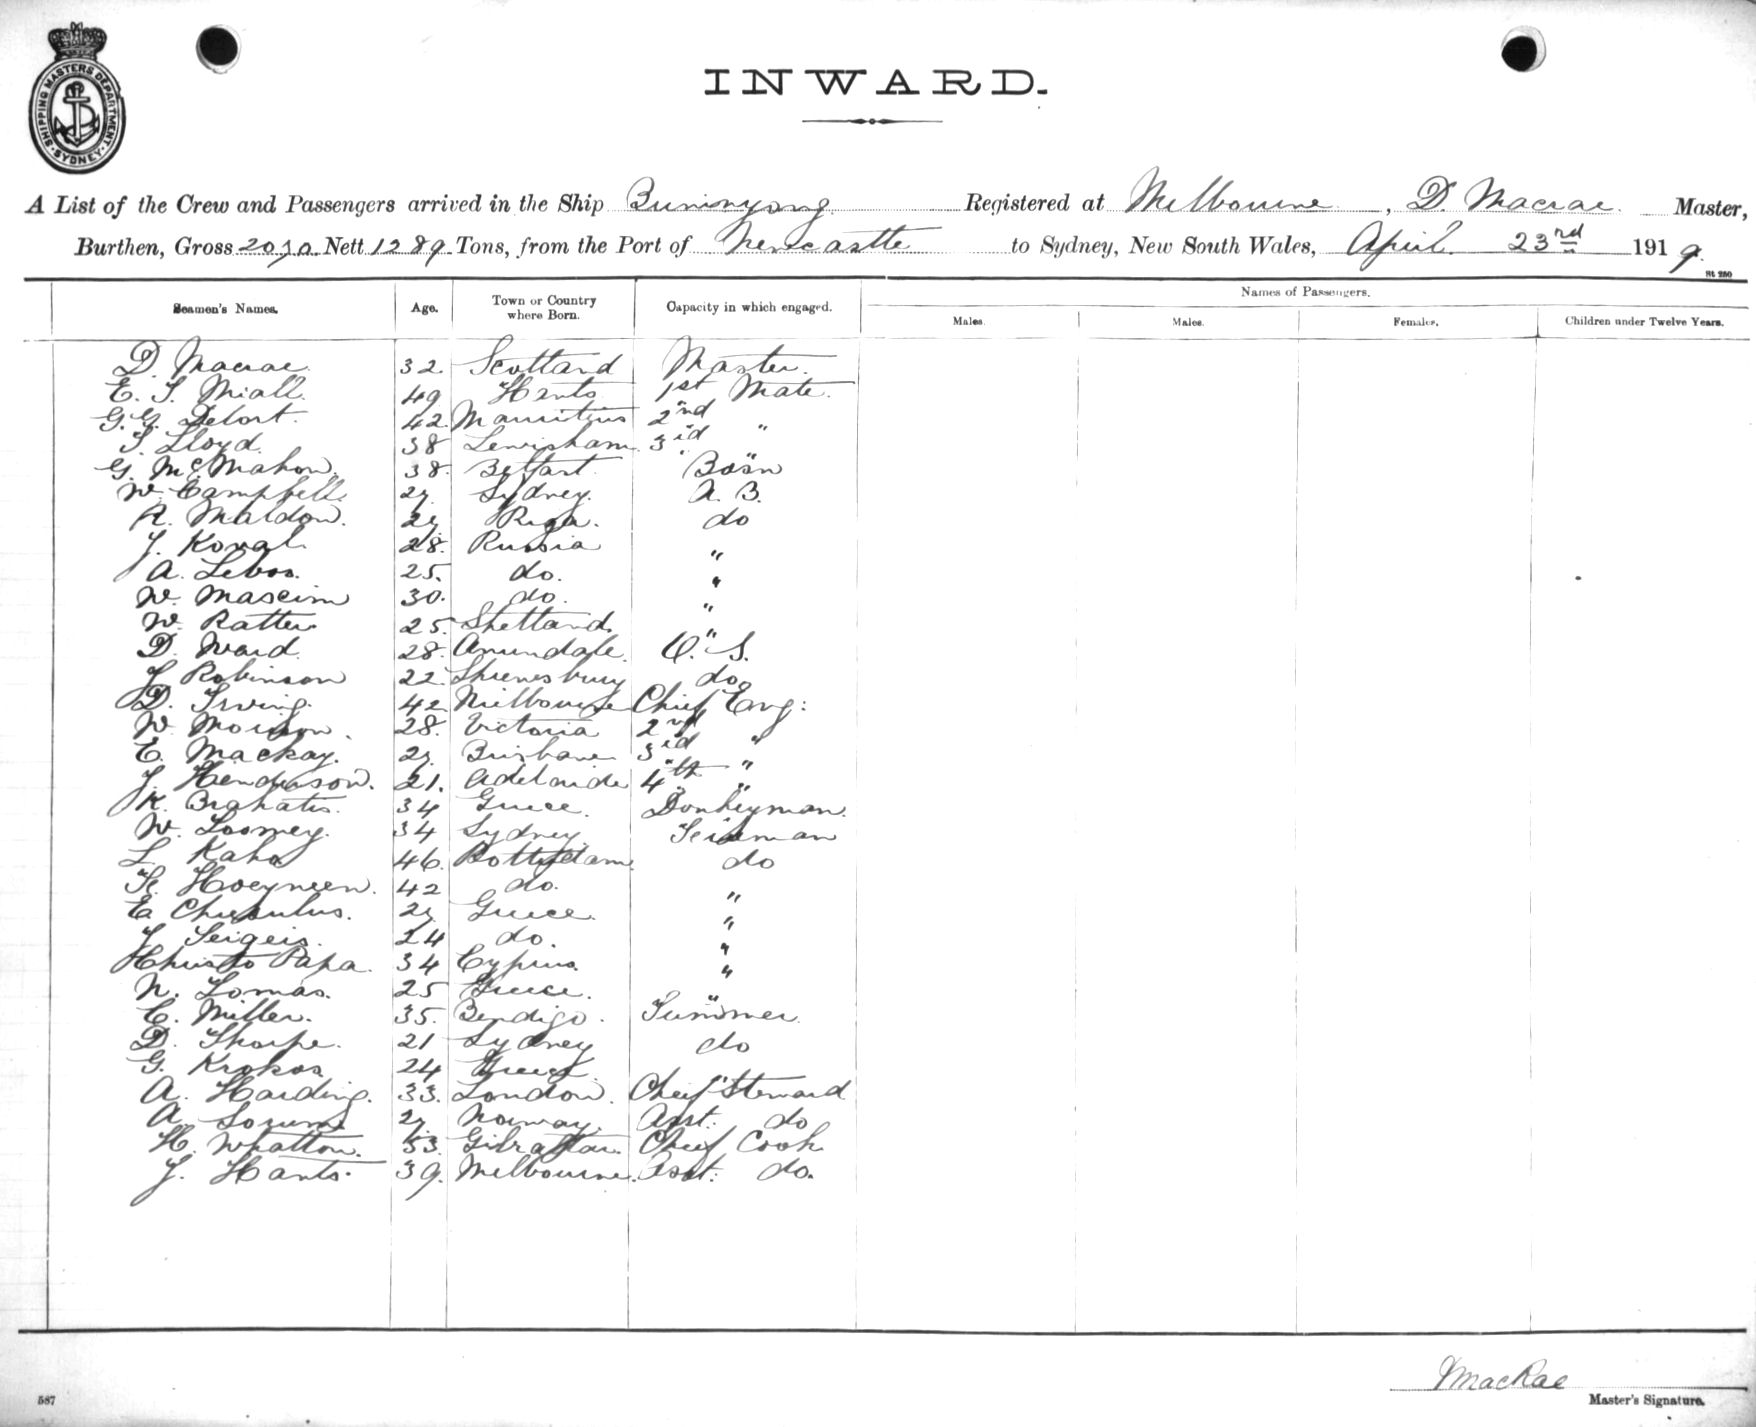 SHIPPING MASTERS DEPARTMENT. SYDNEY
INWARD.
A List of the Crew and Passengers arrived in the Ship Buninyong Registered at Melbourne, D. Macrae. Master,
Burthen, Gross 2070 Nett 1289 Tons, from the Port of Newcastle to Sydney, New South Wales, April 23rd 1919.
St 250
Seamen's Names. Age. Town or Country where Born. Capacity in which engaged. Names of Passengers.
Males. Males. Females. Children under Twelve Years.
D. Macrae. 32. Scotland Master.
E. S. Miall. 49. Hants 1st Mate.
G. G. Delort. 42. Mauritius 2nd "
S. Lloyd. 38 Lewisham. 3rd "
G. McMahon. 38. Belfast. Bosn
W. Campbell. 27. Sydney. A. B.
R. Maldon. 27 Riga. do
J. Koval. 28. Russia "
A. Lebos. 25. do. "
W. Maseim 30. do. "
W. Ratter 25. Shetland. "
D. Ward. 28. Arundale. O. S.
J. Robinson 22. Shrewsbury do.
D. Irving. 42 Melbourne Chief Eng:
W. Morison. 28. Victoria 2nd "
E. Mackay. 27. Brisbane 3rd "
J. Henderson. 21. Adelaide 4th "
K. 34 Greece. Donkeyman.
W. Loomey. 34 Sydney Fireman
L. Kaho 46. Rotterdam. do
42 do. "
E. 27 Greece. "
J. 24 do. "
Christo Papa. 34 Cyprus. "
N. Lomas. 25 Greece. "
C. Miller. 35. Bendigo. Trimmer.
D. Thorpe. 21 Sydney do
G. Krokos 24 Greece "
A. Harding. 33. London. Chief Steward
A. 27. Norway. Asst. do
H. Whatton. 53. Gibraltar. Chief Cook
J. Hants. 39. Melbourne. Asst. do.
MacRae
Master's Signature.
587